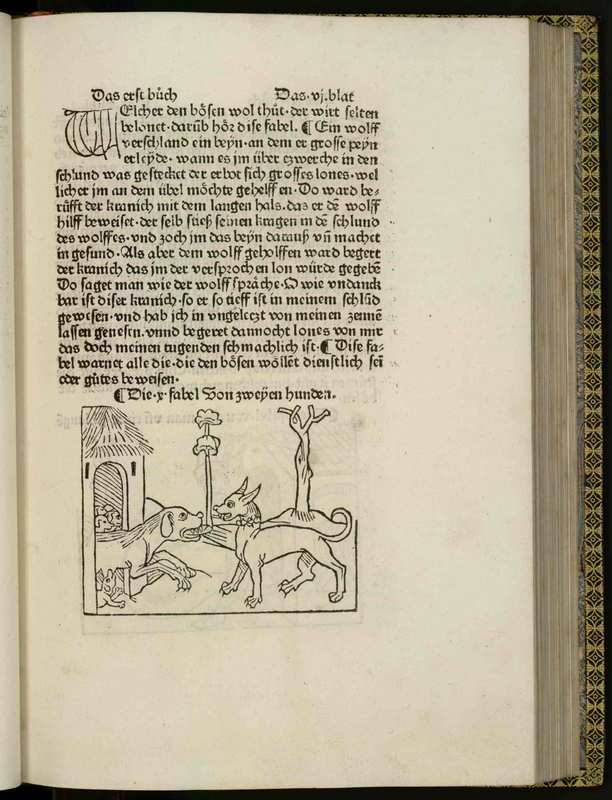 Das erst bůch Das·vj.blat
WElcher den bösen wol thůt·der wirt selten
belonet·darūb hör dise fabel. ¶ Ein wolff
verschland ein beyn·an dem er grosse peyn
erleyde·wann es jm über czwerche in den
schlund was gestecket der erbot sich grosses lones·wel
licher jm an dem übel möchte gehelffen·Do ward be-
rüfft der kranich mit dem langen hals.das er dē wolff
hilff beweiset·der selb stieß seinen kragen in dē schlund
des wolffes·vnd zoch jm das beyn darauß vñ machet
in gesund·Als aber dem wolff geholffen ward begert
der kranich das jm der versprochen lon würde gegebē
Do saget man wie der wolff spräche·O wie vndanck
bar ist diser kranich·so er so tieff ist in meinem schlūd
gewesen·vnd hab jch in vngeleczt von meinen zennē
lassen genesen.vnnd begeret dannocht lones von mir
das doch meinen tugenden schmachlich ist·¶ Dise fa-
bel warnet alle die·die den bösen wöllēt dienstlich sei
oder gůtes beweisen·
¶ Die·x·fabel Von zweyen hunden.